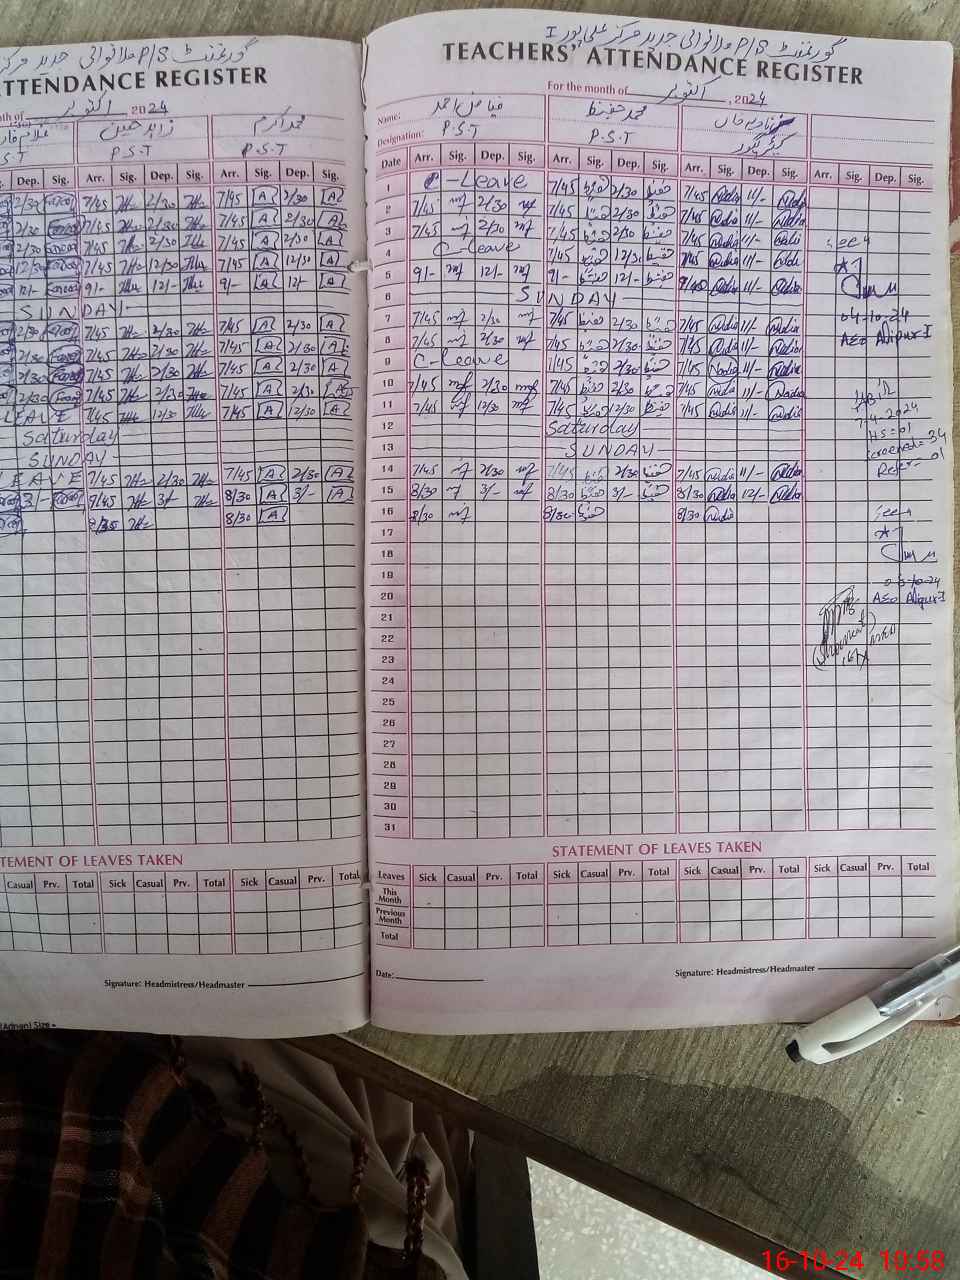 گورنمنٹ P/S ملانوالی جدید مرکز
ATTENDANCE REGISTER
th of اکتوبر, 2024
زاہد حسین
محمد اکرم
S.T P.S.T P.S.T
Dep. Sig. Arr. Sig. Dep. Sig. Arr. Sig. Dep. Sig.
2/30 7/45 2/30 7/45 A 2/30 A
2/30 7/45 2/30 7/45 A 2/30 A
2/30 7/45 2/30 7/45 A 2/30 A
12/30 7/45 12/30 7/45 A 12/30 A
12/- 9/- 12/- 9/- A 12/- A
SUNDAY
2/30 7/45 2/30 7/45 A 2/30 A
2/30 7/45 2/30 7/45 A 2/30 A
2/30 7/45 2/30 7/45 A 2/30 A
2/30 7/45 2/30 7/45 A 2/30 A
LEAVE 7/45 12/30 7/45 A 12/30 A
Saturday
SUNDAY
LEAVE 7/45 2/30 7/45 A 2/30 A
3/- 3/- 8/30 A 3/- A
8/30 A
STATEMENT OF LEAVES TAKEN
Casual Prv. Total Sick Casual Prv. Total Sick Casual Prv. Total
Signature: Headmistress/Headmaster
(Adnan) Size
گورنمنٹ P/S ملانوالی جدید مرکز علی پور I
TEACHERS' ATTENDANCE REGISTER
For the month of اکتوبر, 2024
Name: فیاض احمد محمد حفیظ نادیہ خان
Designation: P.S.T P.S.T کیئر گیور
Date Arr. Sig. Dep. Sig. Arr. Sig. Dep. Sig. Arr. Sig. Dep. Sig. Arr. Sig. Dep. Sig.
1 C-Leave 7/45 حفیظ 2/30 حفیظ 7/45 Nadia 11/- Nadia
2 7/45 2/30 7/45 حفیظ 2/30 حفیظ 7/45 Nadia 11/- Nadia
3 7/45 2/30 7/45 حفیظ 2/30 حفیظ 7/45 Nadia 11/- Nadia
4 C-leave 7/45 حفیظ 12/30 حفیظ 7/45 Nadia 11/- Nadia
5 9/- 12/- 9/- حفیظ 12/- حفیظ Nadia 11/- Nadia
6 SUNDAY
7 7/45 2/30 7/45 حفیظ 2/30 حفیظ 7/45 Nadia 11/- Nadia
8 7/45 2/30 7/45 حفیظ 2/30 حفیظ 7/45 Nadia 11/- Nadia
9 C-Leave 7/45 حفیظ 2/30 حفیظ 7/45 Nadia 11/- Nadia
10 7/45 2/30 7/45 حفیظ 2/30 حفیظ 7/45 Nadia 11/- Nadia
11 7/45 12/30 7/45 حفیظ 12/30 حفیظ 7/45 Nadia 11/- Nadia
12 Saturday
13 SUNDAY
14 7/45 2/30 7/45 حفیظ 2/30 حفیظ 7/45 Nadia 11/- Nadia
15 8/30 3/- 8/30 حفیظ 3/- حفیظ 8/30 Nadia 12/- Nadia
16 8/30 8/30 حفیظ 8/30 Nadia
17
18
19
20
21
22
23
24
25
26
27
28
29
30
31
seen
04-10-24
AEO Alipur-I
HS = 01
Screened = 34
Refer = 01
seen
AEO Alipur-I
STATEMENT OF LEAVES TAKEN
Leaves Sick Casual Prv. Total Sick Casual Prv. Total Sick Casual Prv. Total Sick Casual Prv. Total
This Month
Previous Month
Total
Date:
Signature: Headmistress/Headmaster
16-10-24 10:58